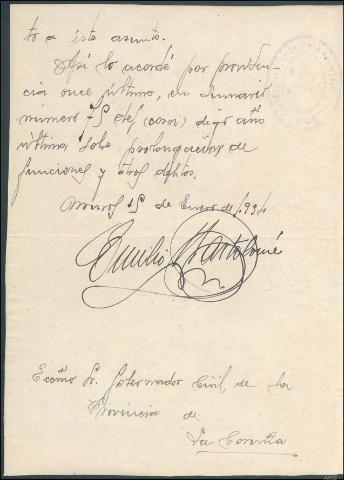 to a éste asunto.
Así lo acordé por providen
cia once último, en sumario
número 75 del (coror) digo año
último, sobre prolongación de
funciones y otros delitos.
Muros 15 de Enero de 1.934
Emilio Bartolomé
Excmo Sr. Gobernador Civil de la
Provincia de
La Coruña